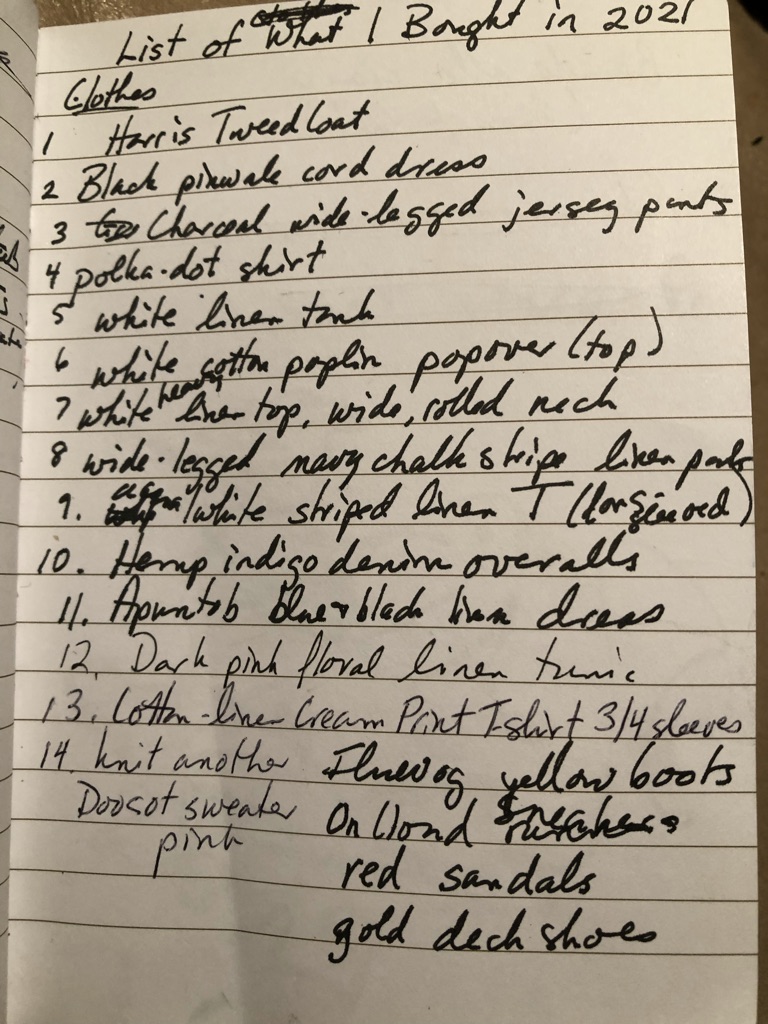 List of What I Bought in 2021
Clothes
1 Harris Tweed Coat
2 Black pinwale cord dress
3 Charcoal wide-legged jersey pants
4 polka-dot shirt
5 white linen tank
6 white cotton poplin popover (top)
7 white heavy linen top, wide, rolled neck
8 wide-legged navy chalk stripe linen pants
9. aqua/white striped linen T
10. Hemp indigo denim overalls
11. Apuntob blue + black linen dress
12. Dark pink floral linen tunic
13. Cotton-linen Cream Print T-shirt 3/4 sleeves
14. knit another
Doocot sweater
pink
Fluevog yellow boots
On Cloud Sneakers
red sandals
gold deck shoes